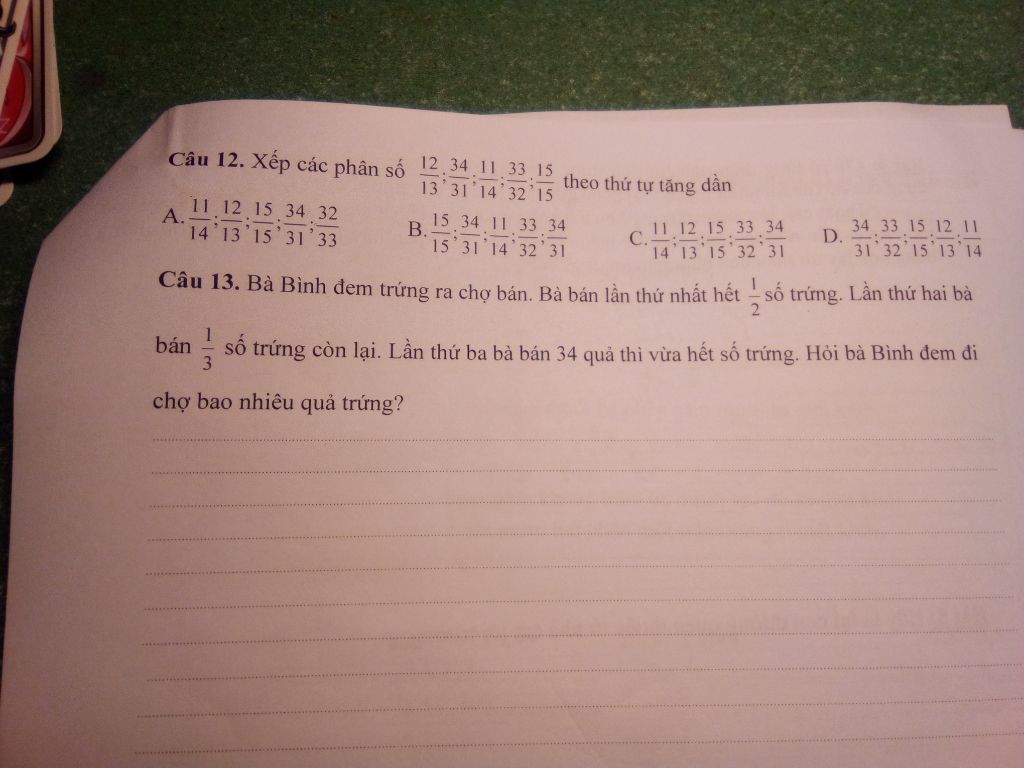 Câu 12. Xếp các phân số 12/13; 34/31; 11/14; 33/32; 15/15 theo thứ tự tăng dần
A. 11/14; 12/13; 15/15; 34/31; 32/33 B. 15/15; 34/31; 11/14; 33/32; 34/31 C. 11/14; 12/13; 15/15; 33/32; 34/31 D. 34/31; 33/32; 15/15; 12/13; 11/14
Câu 13. Bà Bình đem trứng ra chợ bán. Bà bán lần thứ nhất hết 1/2 số trứng. Lần thứ hai bà
bán 1/3 số trứng còn lại. Lần thứ ba bà bán 34 quả thì vừa hết số trứng. Hỏi bà Bình đem đi
chợ bao nhiêu quả trứng?